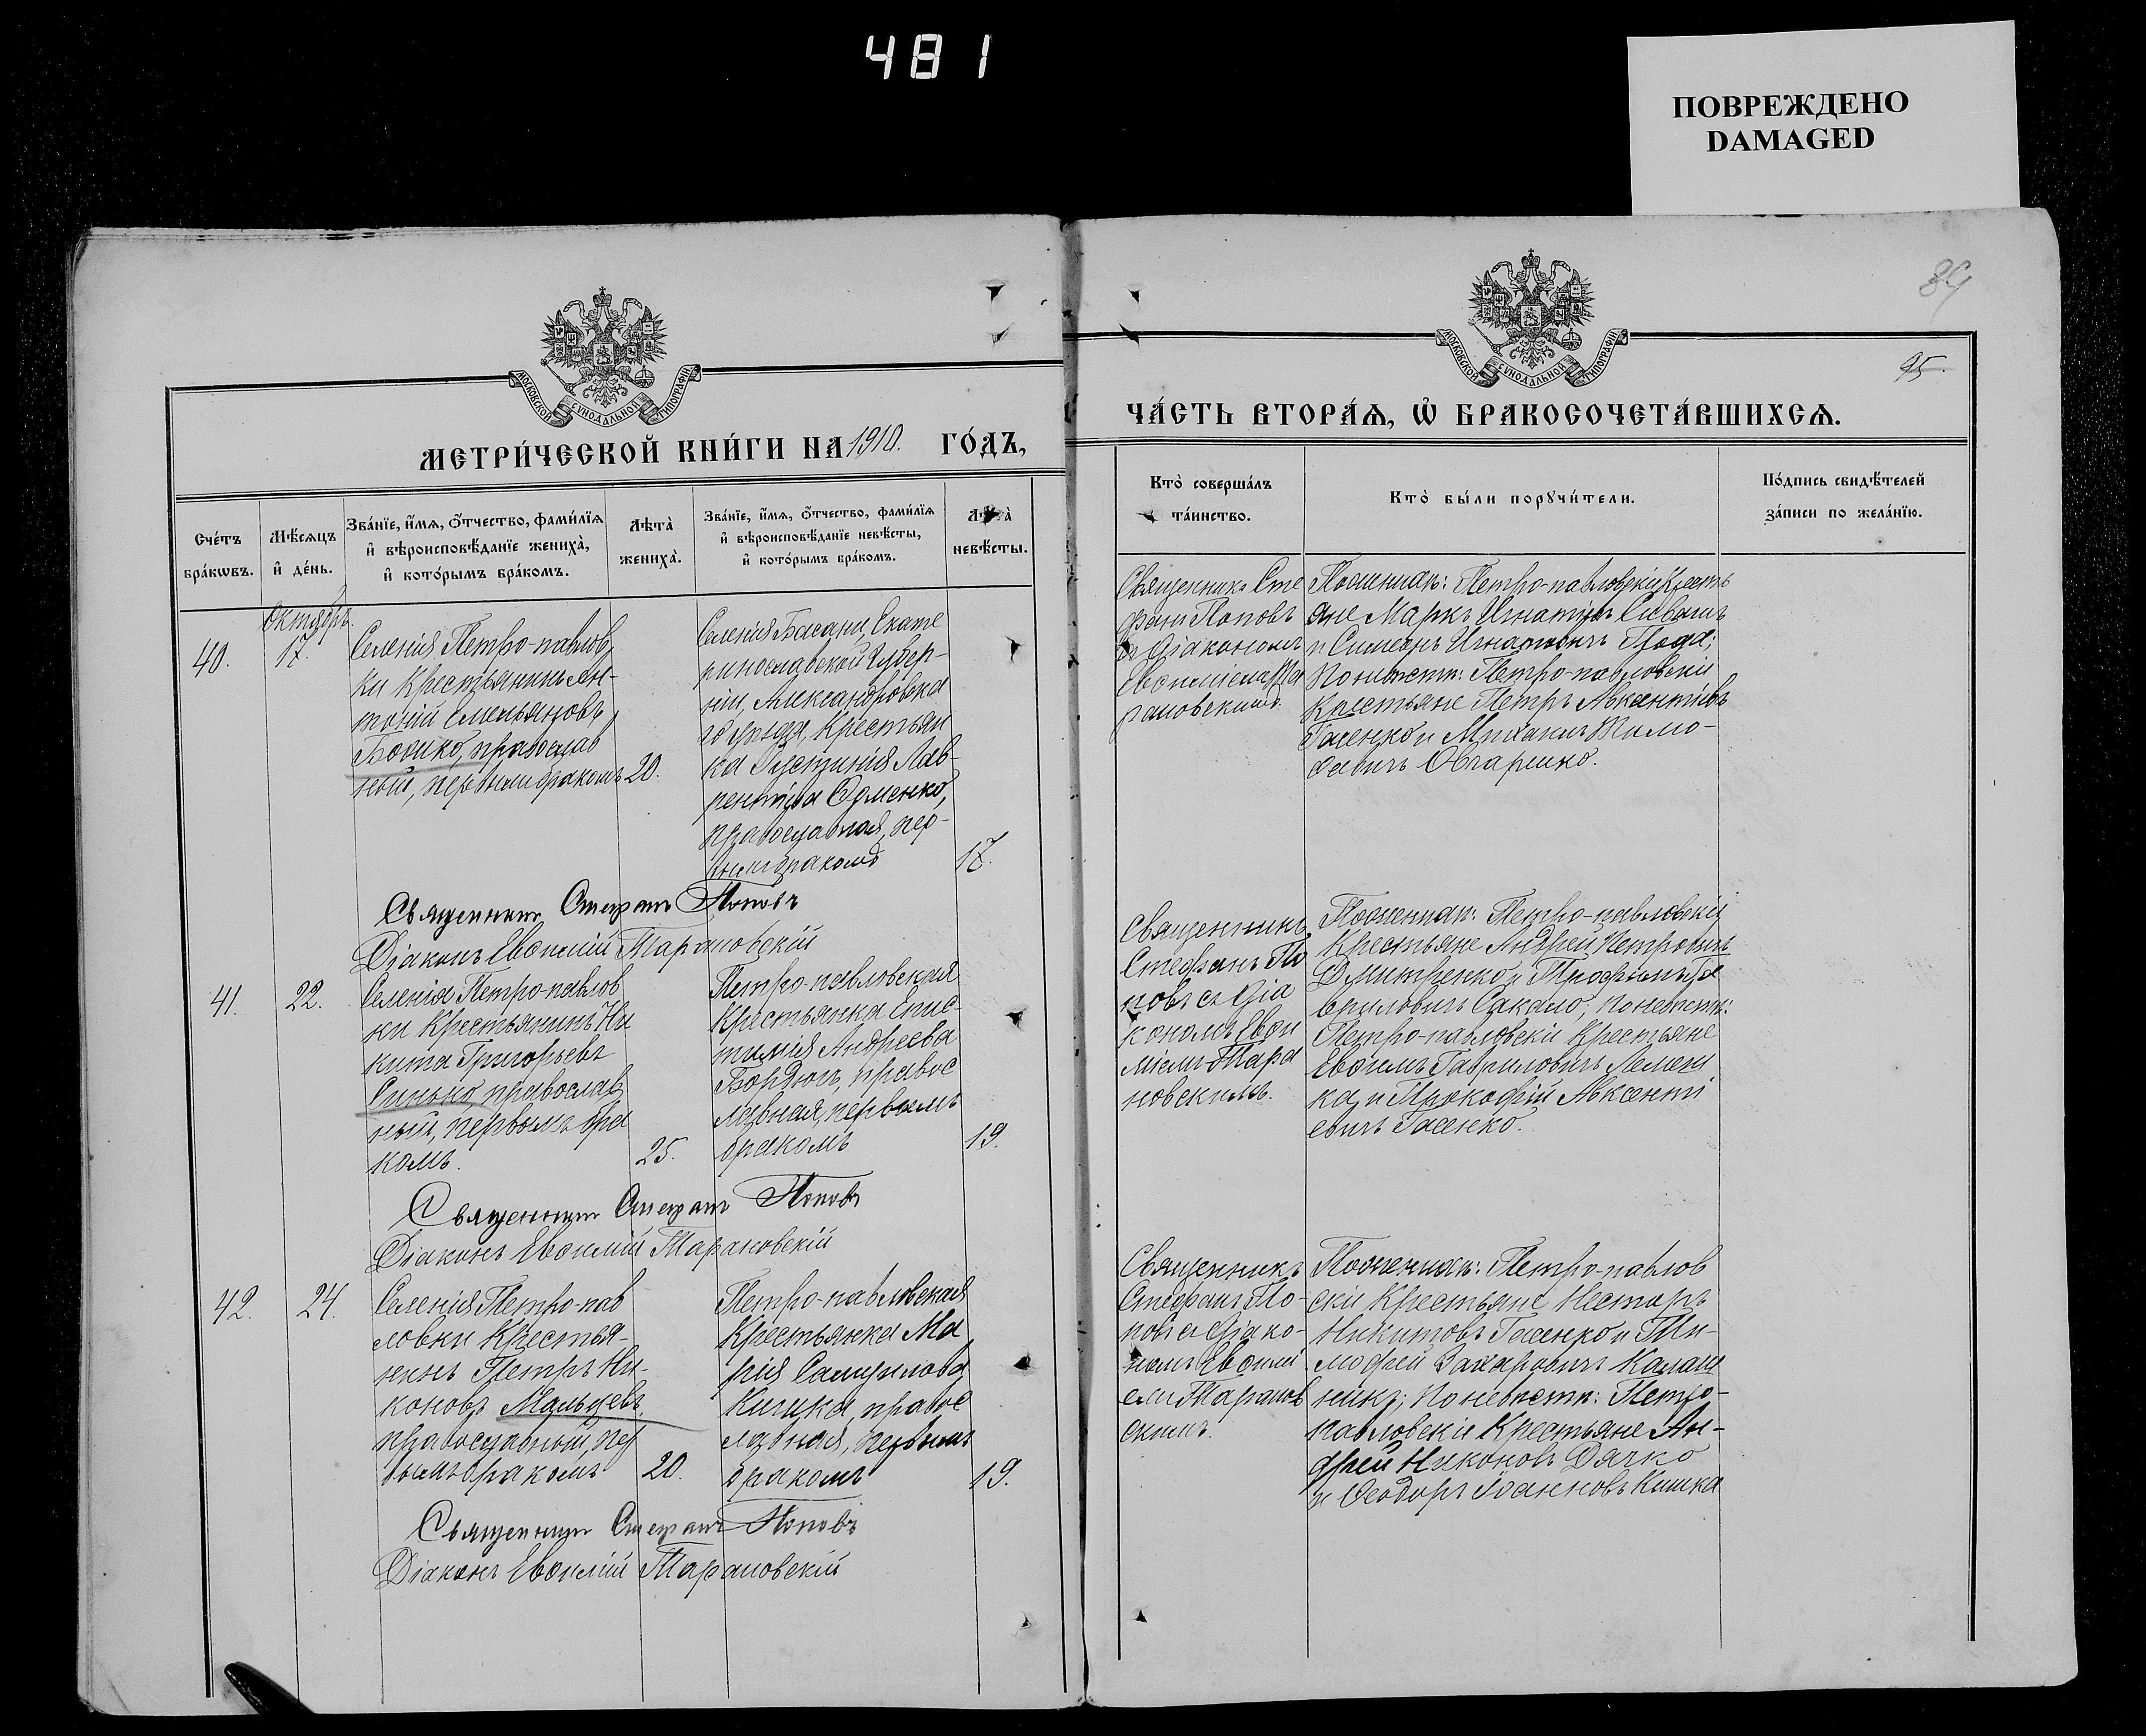 481
ПОВРЕЖДЕНО
DAMAGED
МОСКОВСКОЙ СѴНОДАЛЬНОЙ ТИПОГРАФІИ
МЕТРИ́ЧЕСКОЙ КНИ́ГИ НА 1910. ГО́ДЪ,
Сче́тъ бра́кѡвъ.
Мѣ́сяцъ и҆ де́нь.
Зва́нїе, и҆́мѧ, ѻ҆́тчество, фами́лїѧ
и҆ вѣроисповѣ́данїе жениха̀,
и҆ кото́рымъ бра́комъ.
Лѣта̀ жениха̀.
Зва́нїе, и҆́мѧ, ѻ҆́тчество, фами́лїѧ
и҆ вѣроисповѣ́данїе невѣ́сты,
и҆ кото́рымъ бра́комъ.
Лѣта̀ невѣ́сты.
Октябрь.
40.
17.
Селенія Петро-павлов
ки Крестьянинъ Ан-
тоній Емельяновъ
Бойко, православ
ный, первымъ бракомъ
20.
Селенія Басани, Екате
ринославской Губер-
ніи, Александровска
го уѣзда, Крестьян
ка Іустинія Лав-
рентіева
православная, пер-
вымъ бракомъ
17.
Священникъ Стефанъ Поповъ
Діаконъ Евѳимій Тарановскій
41.
22.
Селенія Петро-павлов
ки Крестьянинъ Ни
кита Григорьевъ
Синько, православ
ный, первымъ бра
комъ.
25.
Петро-павловская
Крестьянка Епис-
тимія Андреева
Бордюгъ, правос
лавная, первымъ
бракомъ
19.
Священникъ Стефанъ Поповъ
Діаконъ Евѳимій Тарановскій
42.
24.
Селенія Петро-пав
ловки Крестья-
нинъ Петръ Ни-
коновъ Мальцевъ,
православный, пер
вымъ бракомъ
20.
Петро-павловская
Крестьянка Ма
рія Самуилова
Кичка, правос
лавная, первымъ
бракомъ
19.
Священникъ Стефанъ Поповъ
Діаконъ Евѳимій Тарановскій
МОСКОВСКОЙ СѴНОДАЛЬНОЙ ТИПОГРАФІИ
95.
ЧА́СТЬ ВТОРА́Ѧ, Ѡ҆ БРАКОСОЧЕТА́ВШИХСѦ.
Кто̀ соверша́лъ
та́инство.
Кто̀ бы́ли порꙋчи́тели.
По́дпись свидѣ́телей
за́писи по жела́нїю.
Священникъ Сте
фанъ Поповъ
съ Діакономъ
Евѳиміемъ Та
рановскимъ.
По женихѣ: Петро-павловскіи Кресть
яне Маркъ Игнатіевъ Сивашъ
и Симеонъ Игнатовичъ
По невѣстѣ: Петро-павловскіи
Крестьяне Петръ Авксентіевъ
Гасенко и Михаилъ Тимо-
ѳеевичъ Овчаренко.
Священникъ
Стефанъ По
повъ съ Діа
кономъ Евѳи
міемъ Тара
новскимъ.
По женихѣ: Петро-павловскіи
Крестьяне Андрей Петровичъ
Дмитренко и Трофимъ Га
вриловичъ Сакало; по невѣстѣ:
Петро-павловскіи Крестьяне
Евѳимъ Гавриловичъ Лемеш
ка, и Прокофій Авксенті
евичъ Гасенко.
Священникъ
Стефанъ По-
повъ съ Діако-
номъ Евѳимі
емъ Таранов
скимъ.
По женихѣ: Петро-павлов
скіи Крестьяне Несторъ
Никитовъ Гасенко и Ти-
моѳей Захаровичъ Калаш
никъ; по невѣстѣ: Петро-
павловскіи Крестьяне Ан-
дрей Никоновъ Дячко
и Ѳеодоръ Іоанновъ Кишка